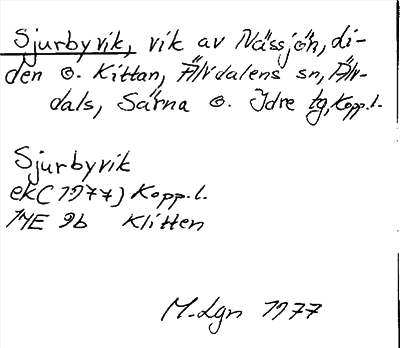 Sjurbyvik, vik av Nässjön, Li-
den o. Kittan, Älvdalens sn, Älv-
dals, Särna o. Idre tg, Kopp.l.
Sjurbyvik
ek (1977) Kopp.l.
14E 9b Klitten
M. Lgn 1977